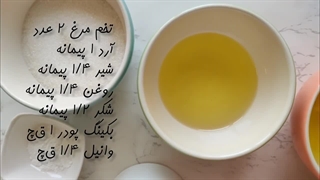 تخم مرغ ۲ عدد
آرد ۱ پیمانه
شیر ۱/۴ پیمانه
روغن ۱/۴ پیمانه
شکر ۱/۲ پیمانه
بکینگ پودر ۱ ق‌چ
وانیل ۱/۴ ق‌چ